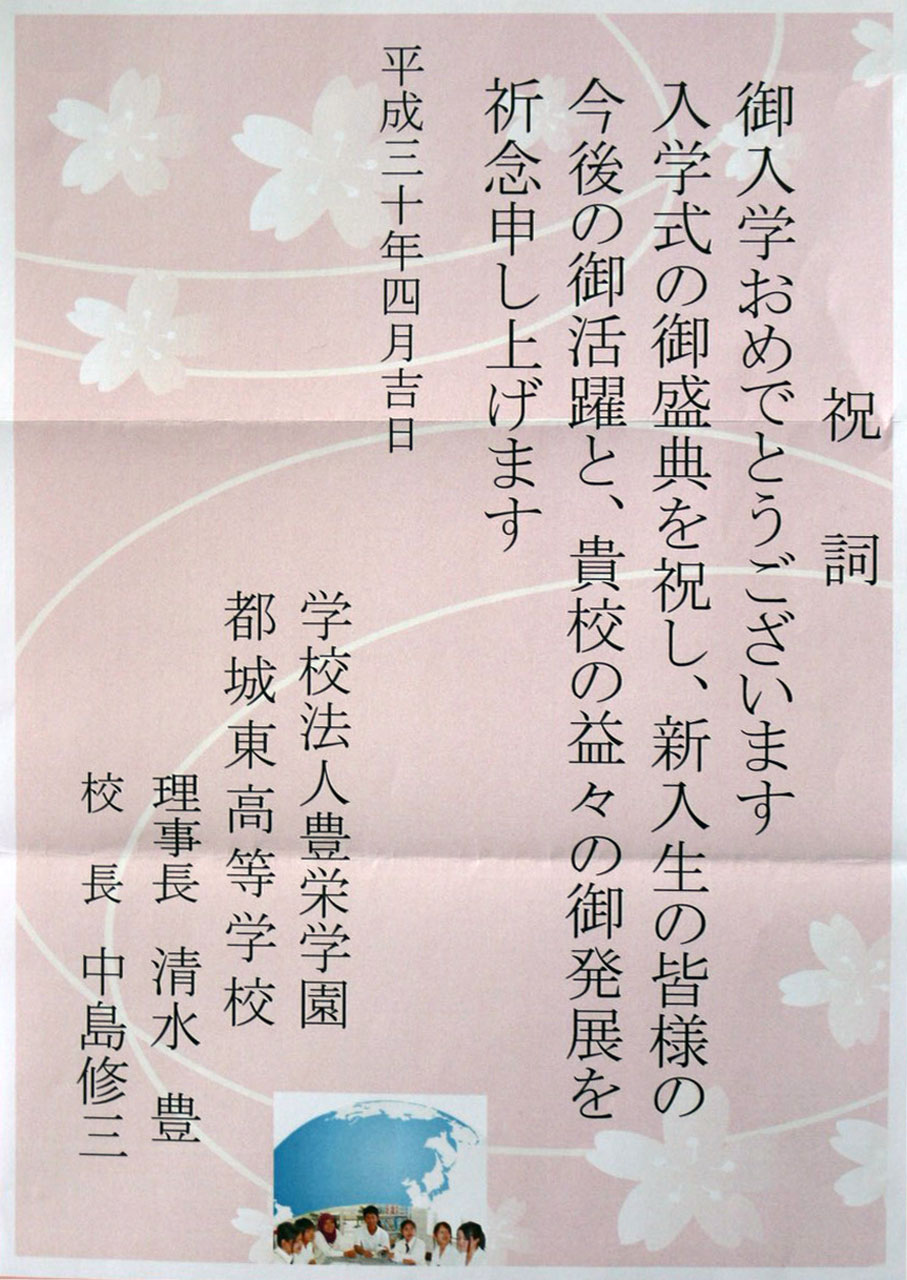 祝詞
御入学おめでとうございます
入学式の御盛典を祝し、新入生の皆様の
今後の御活躍と、貴校の益々の御発展を
祈念申し上げます
平成三十年四月吉日
学校法人豊栄学園
都城東高等学校
理事長 清水 豊
校長 中島修三